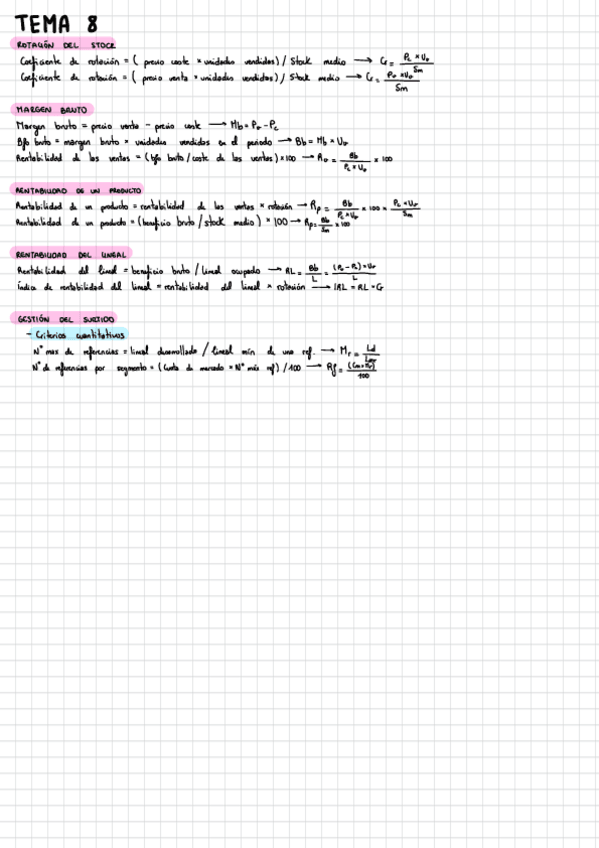 TEMA 8
ROTACIÓN DEL STOCK
Coeficiente de rotación = ( precio coste × unidades vendidas) / Stock medio → Cr = Pc × Uv / Sm
Coeficiente de rotación = ( precio venta × unidades vendidas) / Stock medio → Cr = Pv × Uv / Sm
MARGEN BRUTO
Margen bruto = precio venta - precio coste → Mb = Pv - Pc
Bfo bruto = margen bruto × unidades vendidas en el periodo → Bb = Mb × Uv
Rentabilidad de las ventas = (bfo bruto / coste de las ventas) × 100 → Rv = Bb / Pc × Uv × 100
RENTABILIDAD DE UN PRODUCTO
Rentabilidad de un producto = rentabilidad de las ventas × rotación → Rp = Bb / Pc × Uv × 100 × Pc × Uv / Sm
Rentabilidad de un producto = (beneficio bruto / stock medio) × 100 → Rp = Bb / Sm × 100
RENTABILIDAD DEL LINEAL
Rentabilidad del lineal = beneficio bruto / lineal ocupado → RL = Bb / L = (Pv - Pc) × Uv / L
Índice de rentabilidad del lineal = rentabilidad del lineal × rotación → IRL = RL × Cr
GESTIÓN DEL SURTIDO
- Criterios cuantitativos
Nº max de referencias = lineal desarrollado / lineal mín de una ref. → Mr = Ld
Nº de referencias por segmento = (cuota de mercado × Nº máx ref) / 100 → Rf = (Cm × Mr) / 100